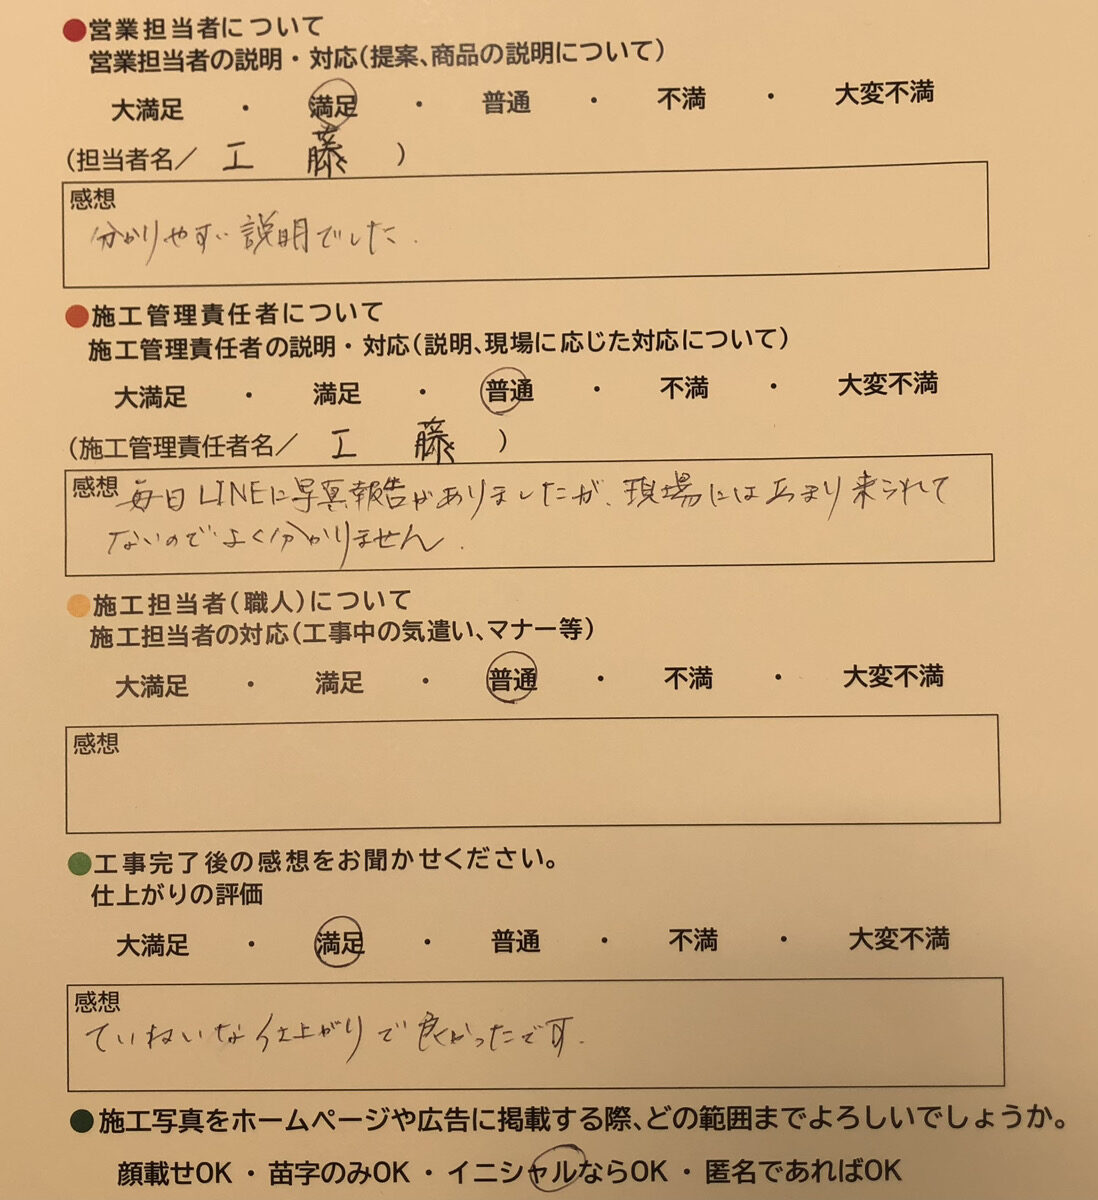 ●営業担当者について
営業担当者の説明・対応(提案、商品の説明について)
大満足 ・ 満足 ・ 普通 ・ 不満 ・ 大変不満
(担当者名／ 工 藤 )
感想
分かりやすい説明でした.
●施工管理責任者について
施工管理責任者の説明・対応(説明、現場に応じた対応について)
大満足 ・ 満足 ・ 普通 ・ 不満 ・ 大変不満
(施工管理責任者名／ 工 藤 )
感想 毎日LINEに写真報告がありましたが、現場にはあまり来られて
ないのでよく分かりません.
●施工担当者(職人)について
施工担当者の対応(工事中の気遣い、マナー等)
大満足 ・ 満足 ・ 普通 ・ 不満 ・ 大変不満
感想
●工事完了後の感想をお聞かせください。
仕上がりの評価
大満足 ・ 満足 ・ 普通 ・ 不満 ・ 大変不満
感想
ていねいな仕上がりで良かったです.
●施工写真をホームページや広告に掲載する際、どの範囲までよろしいでしょうか。
顔載せOK ・ 苗字のみOK ・ イニシャルならOK ・ 匿名であればOK